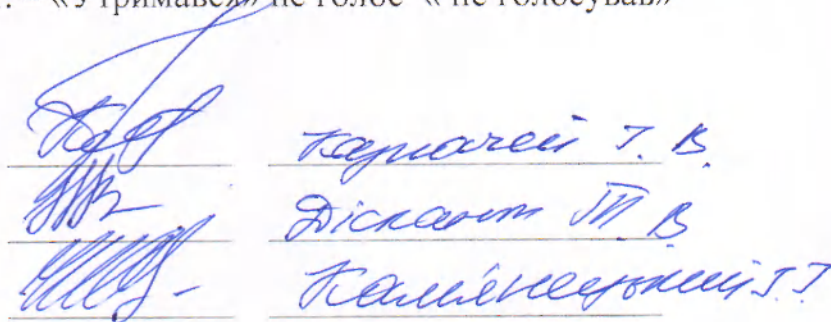 «Утримався» не голос « не голосував»
Казначей Г. В.
Діскант Т. В.
Кам'янецький Г. Г.